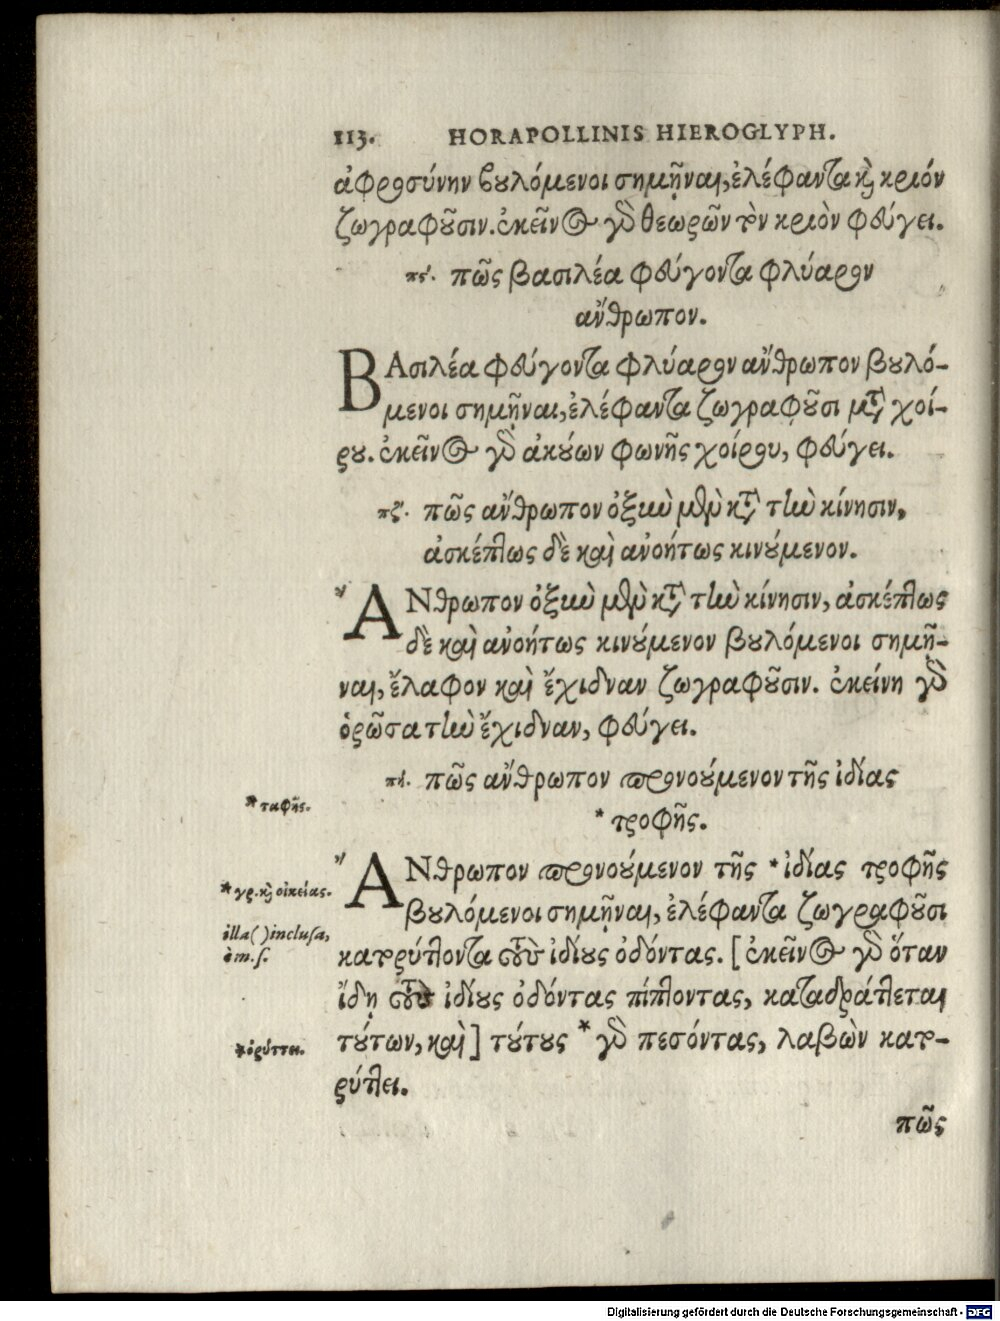 113. HORAPOLLINIS HIEROGLYPH.
ἀφροσύνην βουλόμενοι σημῆναι, ἐλέφαντα καὶ κριόν
ζωγραφοῦσιν. ἐκεῖνος γὰρ θεωρῶν τὸν κριὸν φεύγει.
πϛ΄. πῶς βασιλέα φεύγοντα φλύαρον
ἄνθρωπον.
ΒΑσιλέα φεύγοντα φλύαρον ἄνθρωπον βουλό-
μενοι σημῆναι, ἐλέφαντα ζωγραφοῦσι μετὰ χοί-
ρου. ἐκεῖνος γὰρ ἀκούων φωνῆς χοίρου, φεύγει.
πζ. πῶς ἄνθρωπον ὀξὺν μὲν κατὰ τὴν κίνησιν,
ἀσκέπτως δὲ καὶ ἀνοήτως κινούμενον.
ἌΝθρωπον ὀξὺν μὲν κατὰ τὴν κίνησιν, ἀσκέπτως
δὲ καὶ ἀνοήτως κινούμενον βουλόμενοι σημῆ-
ναι, ἔλαφον καὶ ἔχιδναν ζωγραφοῦσιν. ἐκείνη γὰρ
ὁρῶσα τὴν ἔχιδναν, φεύγει.
πή. πῶς ἄνθρωπον προνοούμενον τῆς ἰδίας
* τροφῆς.
* ταφῆς.
ἌΝθρωπον προνοούμενον τῆς * ἰδίας τροφῆς
* γρ. καὶ οἰκείας.
βουλόμενοι σημῆναι, ἐλέφαντα ζωγραφοῦσι
illa ( ) inclusa,
κατορύττοντα τοὺς ἰδίους ὀδόντας. [ἐκεῖνος γὰρ ὅταν
om. s.
ἴδῃ τοὺς ἰδίους ὀδόντας πίπτοντας, καταδράττεται
τούτων, καὶ] τούτους * γὰρ πεσόντας, λαβὼν κατο-
* ὀρύττει.
ρύττει.
πῶς